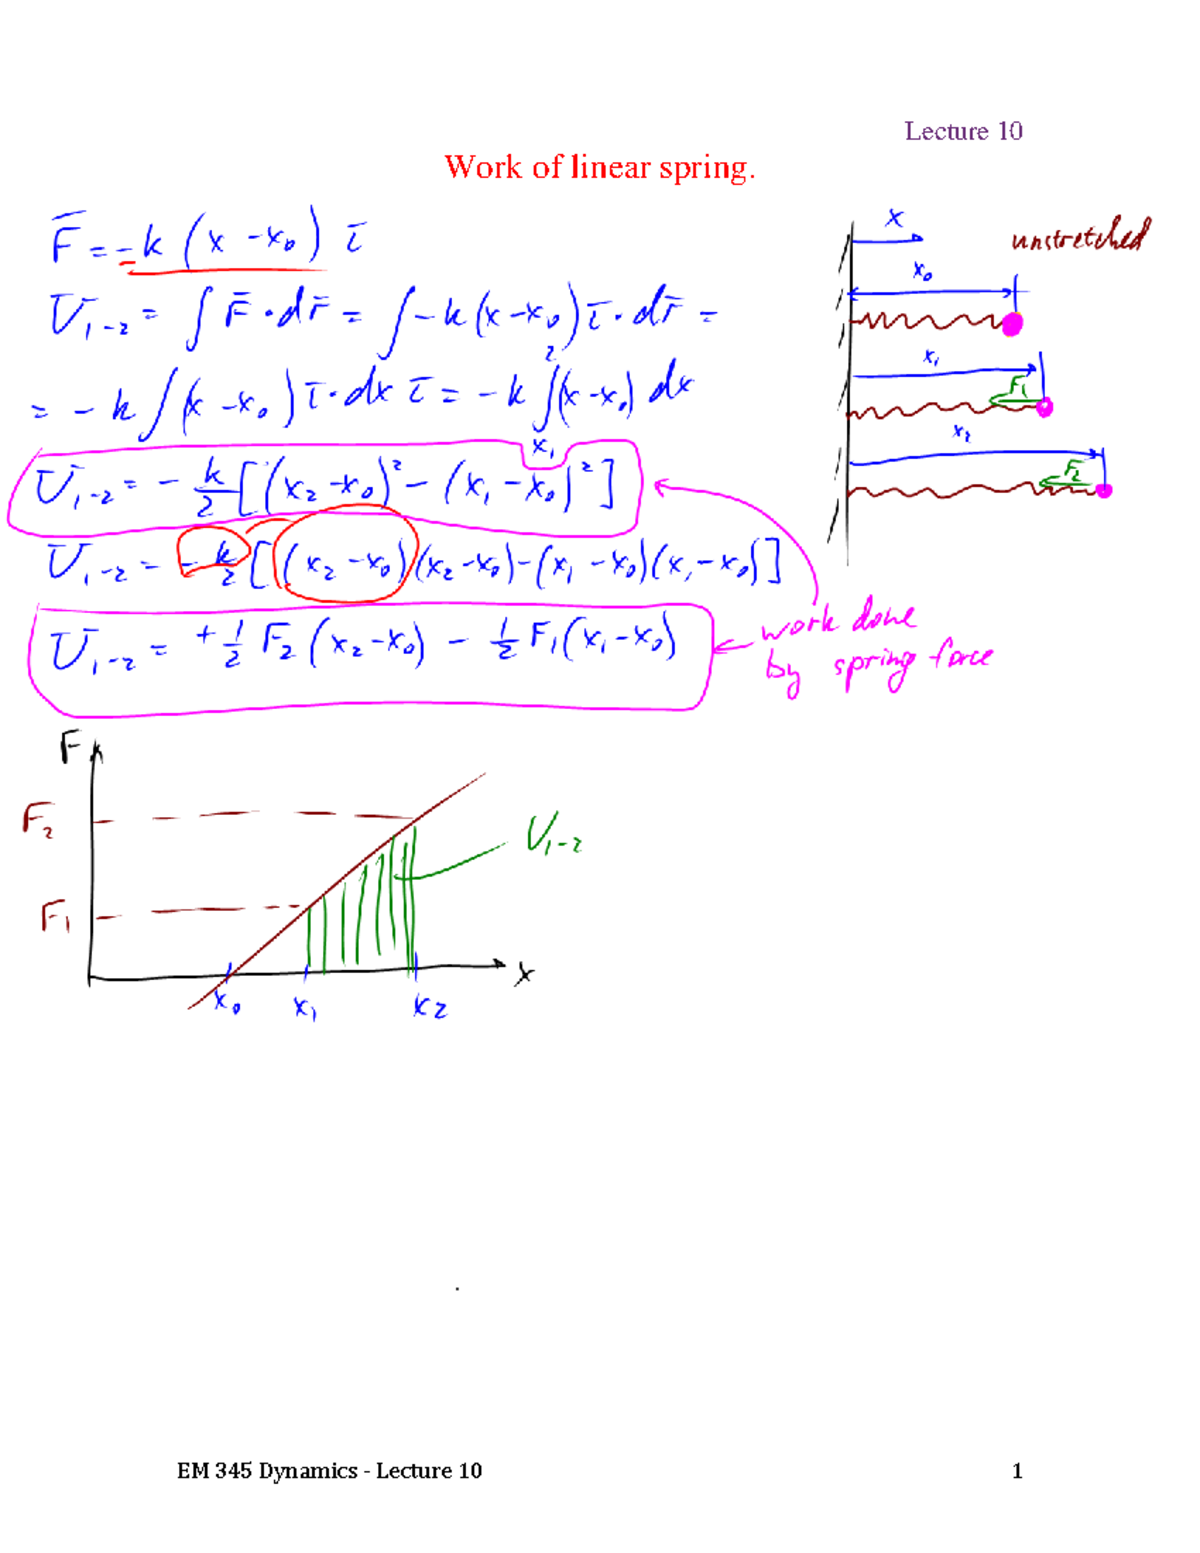 Lecture 10
Work of linear spring.
F̄ = -k (x - x₀) ī
U₁₋₂ = ∫ F̄ · dr̄ = ∫ -k (x - x₀) ī · dr̄ =
= -k ∫ (x - x₀) ī · dx ī = -k ∫ₓ₁² (x - x₀) dx
U₁₋₂ = - k/2 [(x₂ - x₀)² - (x₁ - x₀)²]
U₁₋₂ = - k/2 [(x₂ - x₀)(x₂ - x₀) - (x₁ - x₀)(x₁ - x₀)]
U₁₋₂ = + 1/2 F₂ (x₂ - x₀) - 1/2 F₁ (x₁ - x₀)
work done
by spring force
x
unstretched
x₀
x₁
F₁
x₂
F₂
F
F₂
U₁₋₂
F₁
x
x₀ x₁ x₂
EM 345 Dynamics - Lecture 10 1